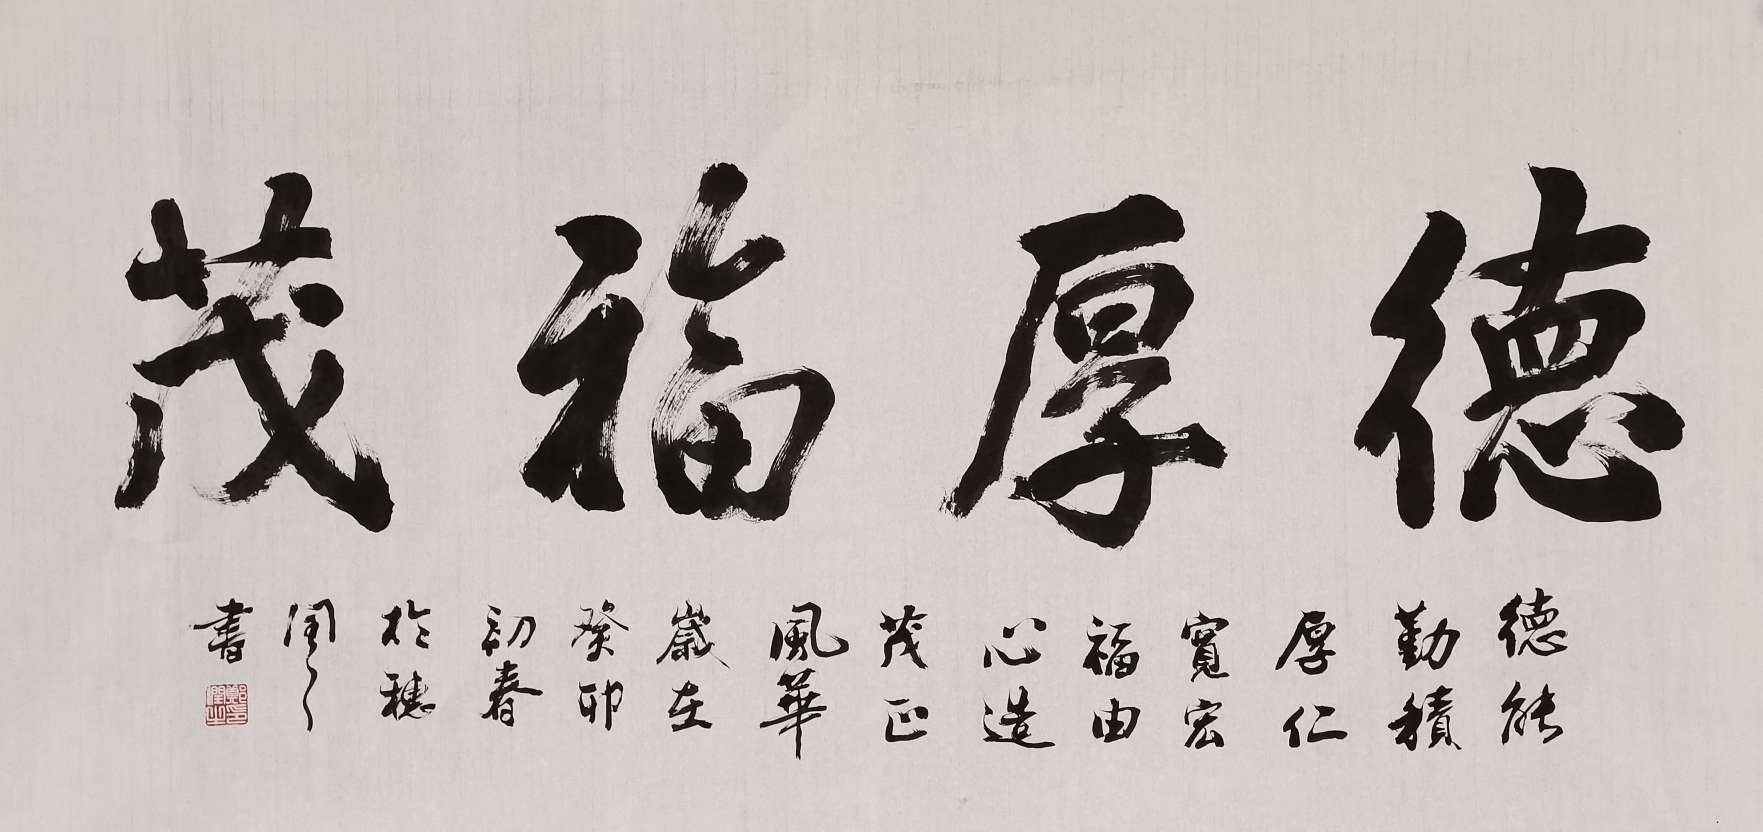 德厚福茂
德能
勤積
厚仁
寬宏
福由
心造
茂正
風華
歲在
癸卯
初春
於穗
閏之
書